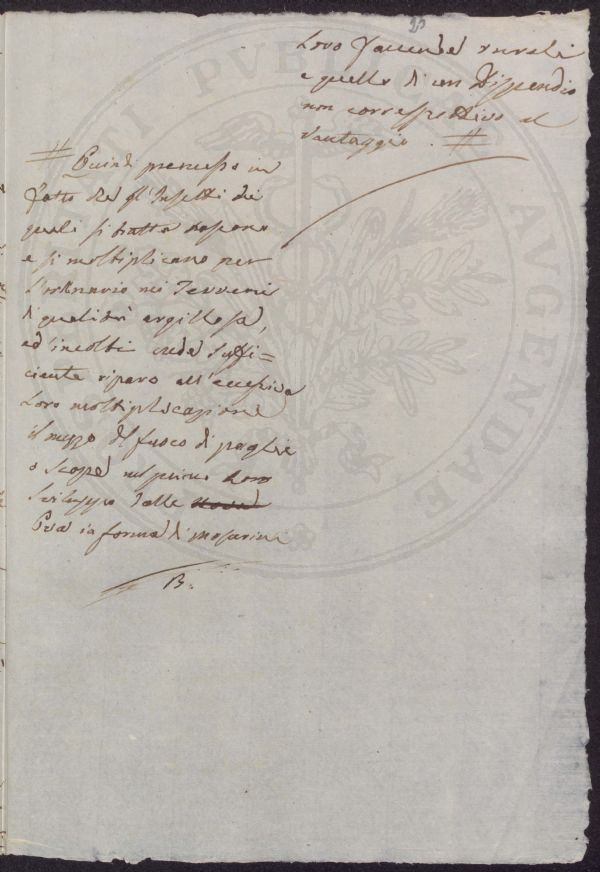 Loro faccende rurali
e quello di un dispendio
non correspettivo al
vantaggio. #
# Quindi premesso in
fatto che gl'Insetti dei
quali si tratta nascono
e si moltiplicano per
l'ordinario nei Terreni
di qualità argillosa,
ed incolti crede suffi=
ciente riparo all'eccessiva
loro moltiplicazione
il mezzo del fuoco di paglie
o scope nel primo loro
sviluppo dalle
Ova in forma di moscarini
B.
PUBLICAE AUGENDAE